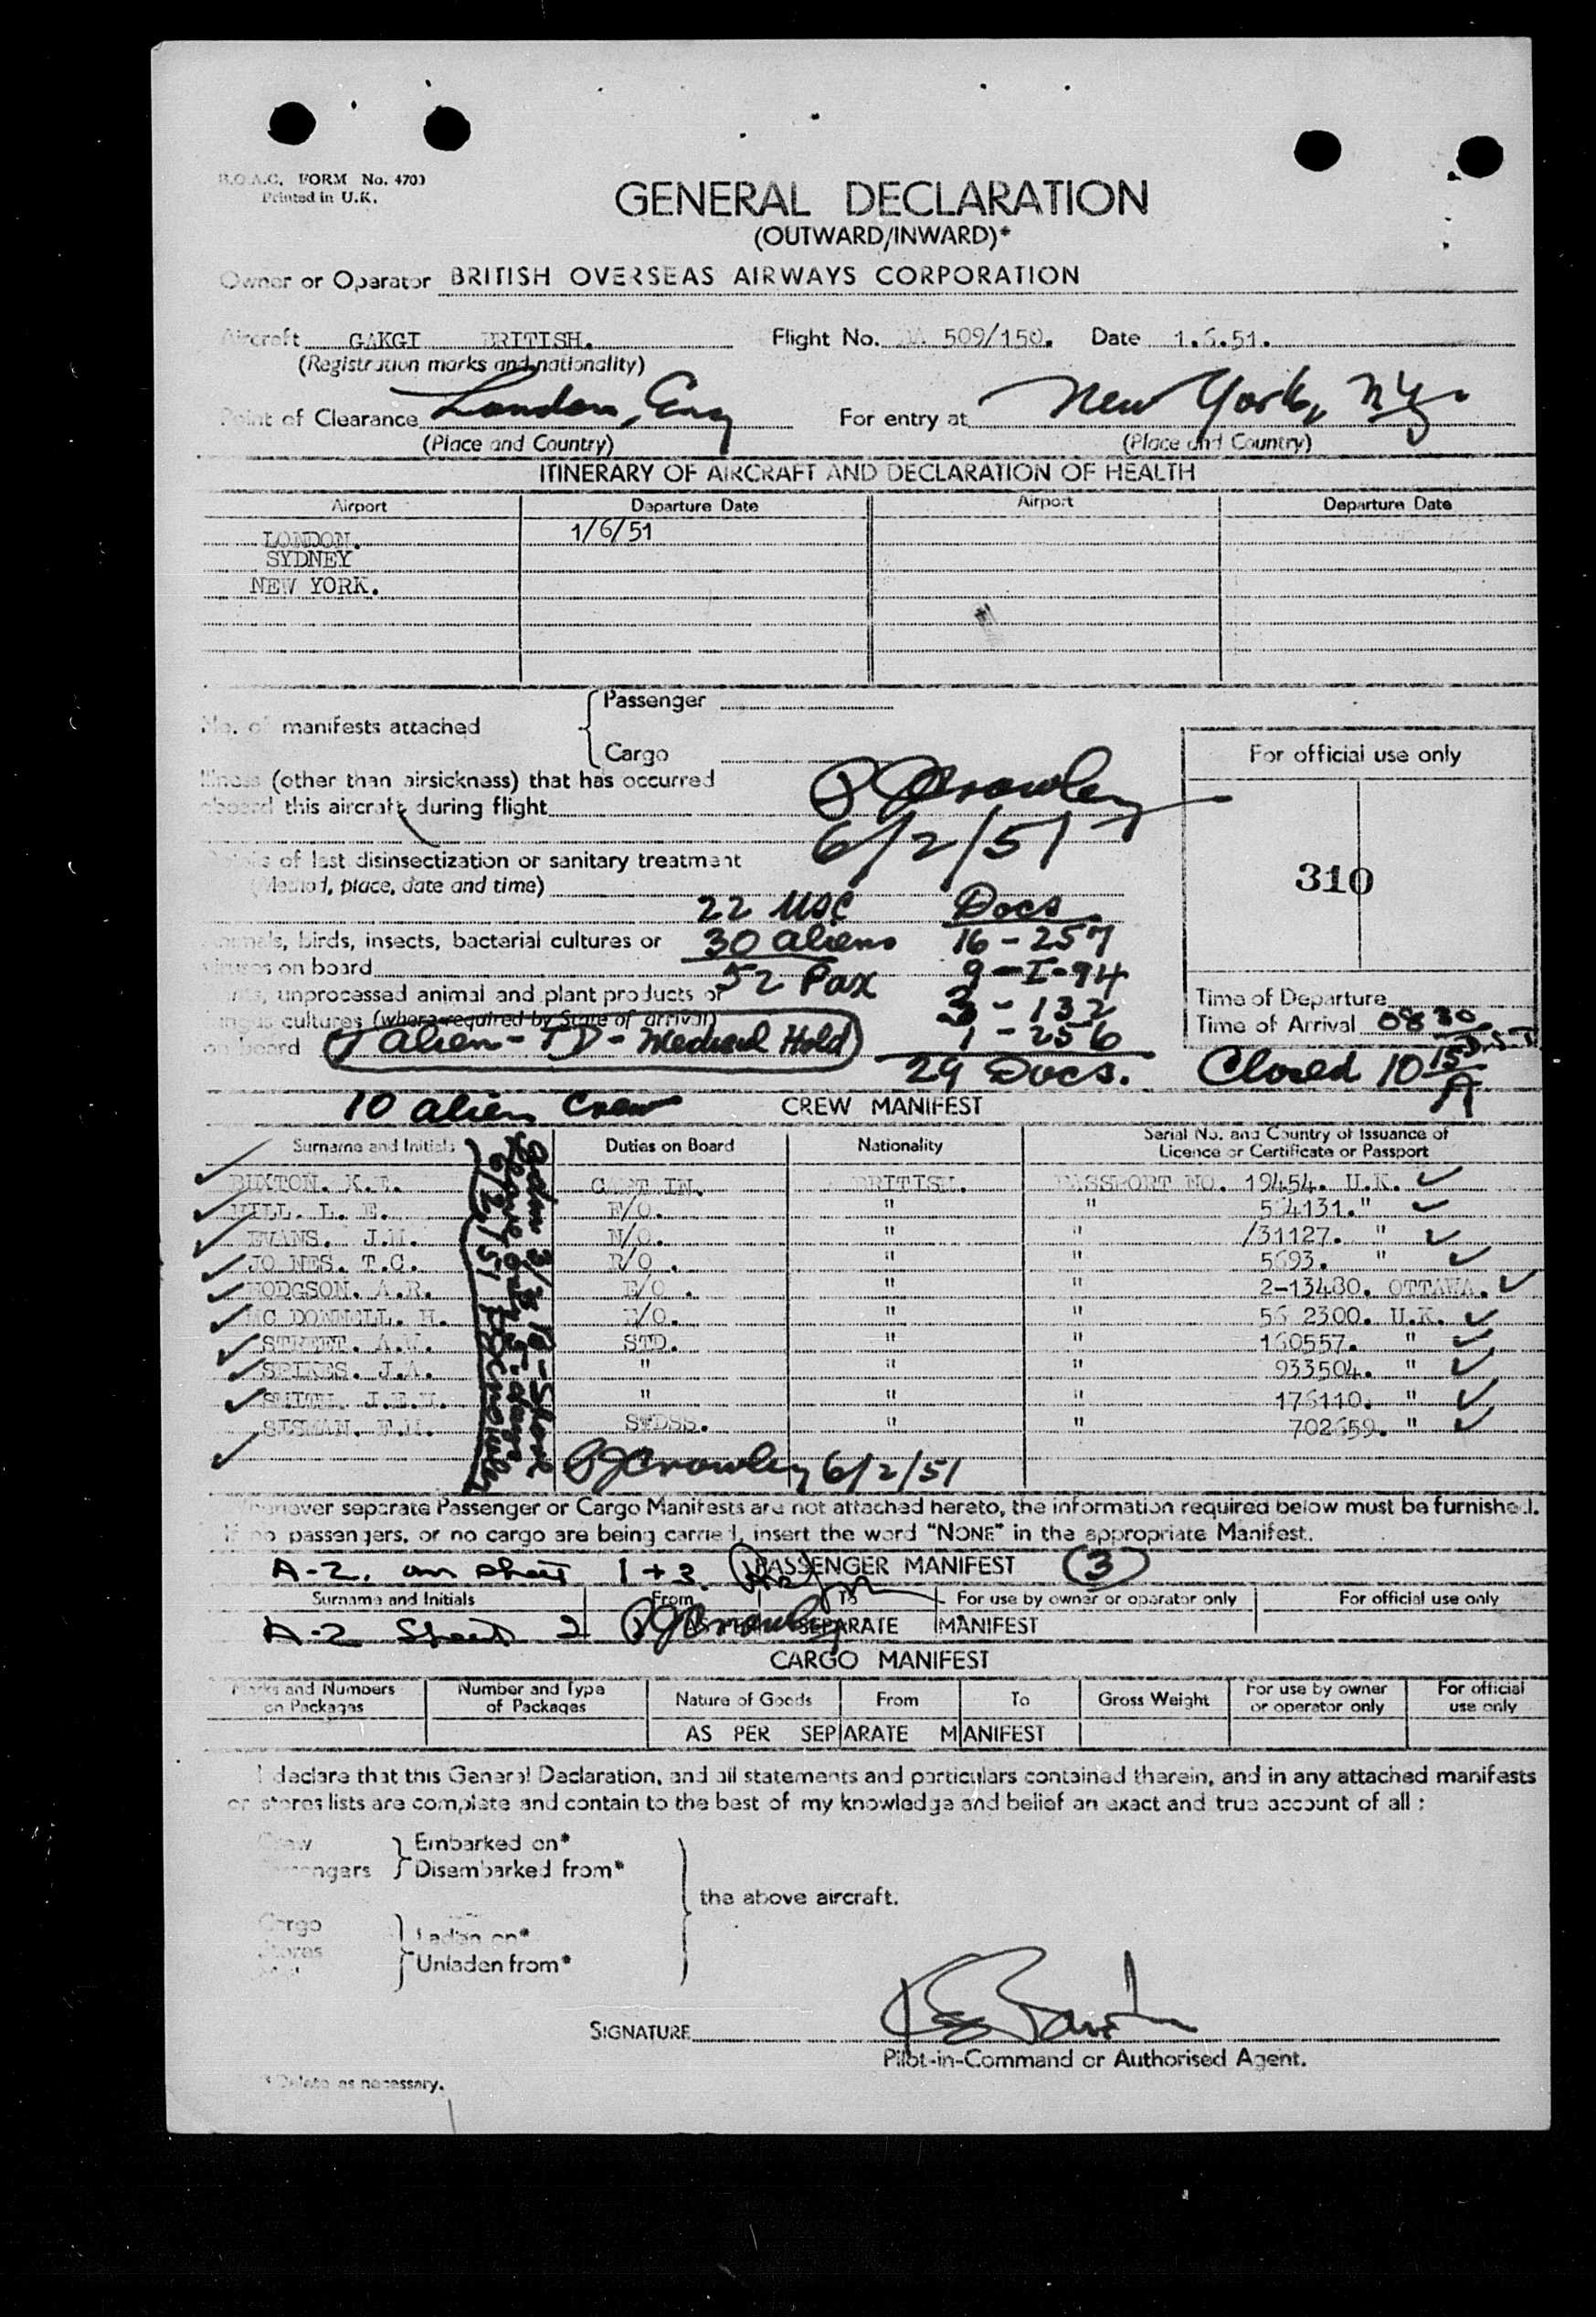 B.O.A.C. FORM No. 4703
Printed in U.K.
GENERAL DECLARATION
(OUTWARD/INWARD)*
Owner or Operator BRITISH OVERSEAS AIRWAYS CORPORATION
Aircraft GAKGI BRITISH. Flight No. BA 509/150. Date 1.6.51.
(Registration marks and nationality)
Point of Clearance London, Eng For entry at New York, N.Y.
(Place and Country) (Place and Country)
ITINERARY OF AIRCRAFT AND DECLARATION OF HEALTH
Airport Departure Date Airport Departure Date
LONDON. 1/6/51
SYDNEY
NEW YORK.
Passenger
No. of manifests attached
Cargo
For official use only
Illness (other than airsickness) that has occurred
aboard this aircraft during flight
PJCrowley
6/2/51
Details of last disinsectization or sanitary treatment
(Method, place, date and time)
310
22 USC Docs.
Animals, birds, insects, bacterial cultures or 30 aliens 16 - 257
viruses on board 52 Pax 9 - I-94
Plants, unprocessed animal and plant products or 3 - 132
fungus cultures (where required by State of arrival) 1 - 256
on board 1 alien - TD - Medical Hold
29 Docs.
Time of Departure
Time of Arrival 0830 D.S.T
Closed 10 15 A
10 alien Crew CREW MANIFEST
Surname and Initials Duties on Board Nationality Serial No. and Country of Issuance of
Licence or Certificate or Passport
BUXTON. K.E. CAPTAIN. BRITISH. PASSPORT NO. 19454. U.K.
HILL. L. E. F/O. " " 524131. "
EVANS. J.H. N/O. " " /31127. "
JONES. T.C. R/O. " " 5693. "
HODGSON. A.R. E/O. " " 2-13480. OTTAWA.
MC DONNELL. H. E/O. " " 562300. U.K.
STREET. A.W. STD. " " 160557. "
SPIKES. J.A. " " " 933504. "
SMITH. J.E.H. " " " 176110. "
SISMAN. F.M. STDSS. " " 702659. "
PJCrowley 6/2/51
Whenever separate Passenger or Cargo Manifests are not attached hereto, the information required below must be furnished.
If no passengers, or no cargo are being carried, insert the word "NONE" in the appropriate Manifest.
A-2. on sheet 1 + 3. PASSENGER MANIFEST (3)
Surname and Initials From To For use by owner or operator only For official use only
A-2 Sheet 2 PJCrowley SEPARATE MANIFEST
CARGO MANIFEST
Marks and Numbers on Packages Number and Type of Packages Nature of Goods From To Gross Weight For use by owner or operator only For official use only
AS PER SEPARATE MANIFEST
I declare that this General Declaration, and all statements and particulars contained therein, and in any attached manifests
or stores lists are complete and contain to the best of my knowledge and belief an exact and true account of all :
Crew Embarked on*
Passengers Disembarked from*
the above aircraft.
Cargo
Laden on*
Stores
Unladen from*
SIGNATURE
Pilot-in-Command or Authorised Agent.
* Delete as necessary.